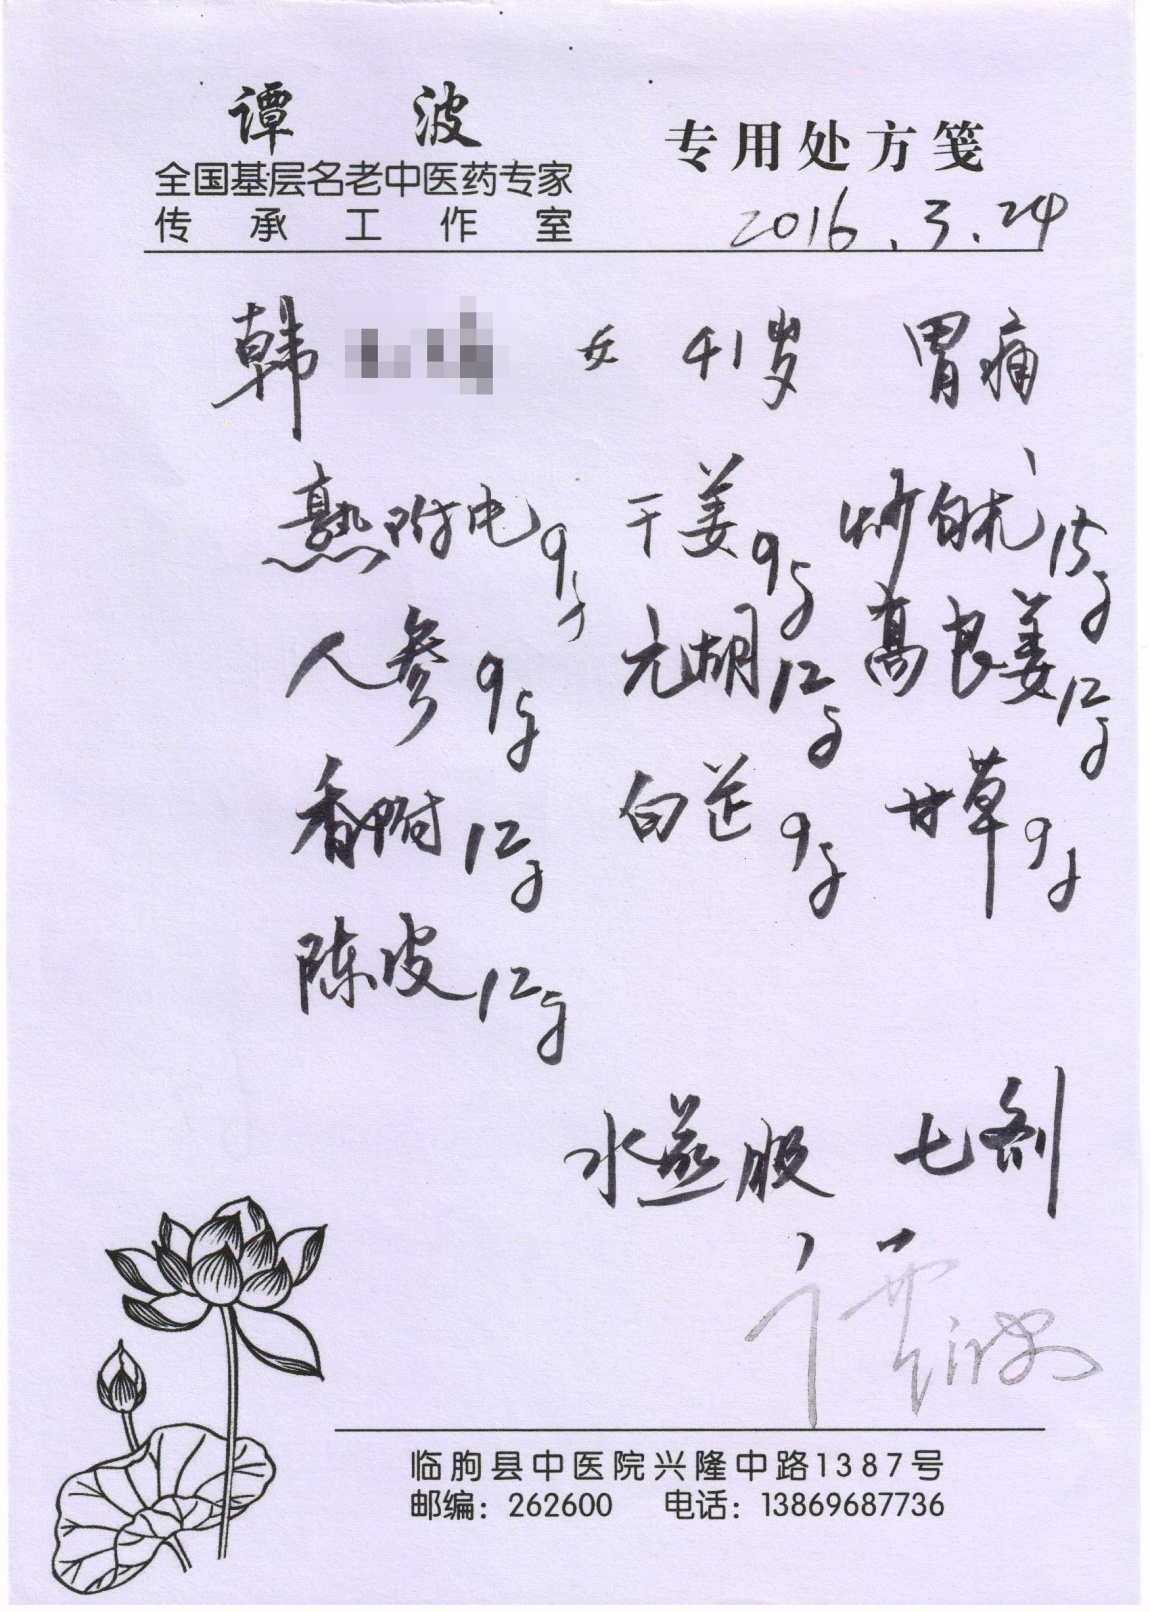 谭波
全国基层名老中医药专家
传承工作室
专用处方笺
2016.3.24
韩 女 41岁 胃痛
熟附片9g 干姜9g 炒白术15g
人参9g 元胡12g 高良姜12g
香附12g 白芷9g 甘草9g
陈皮12g
水煎服 七剂
谭波
临朐县中医院兴隆中路1387号
邮编：262600 电话：13869687736